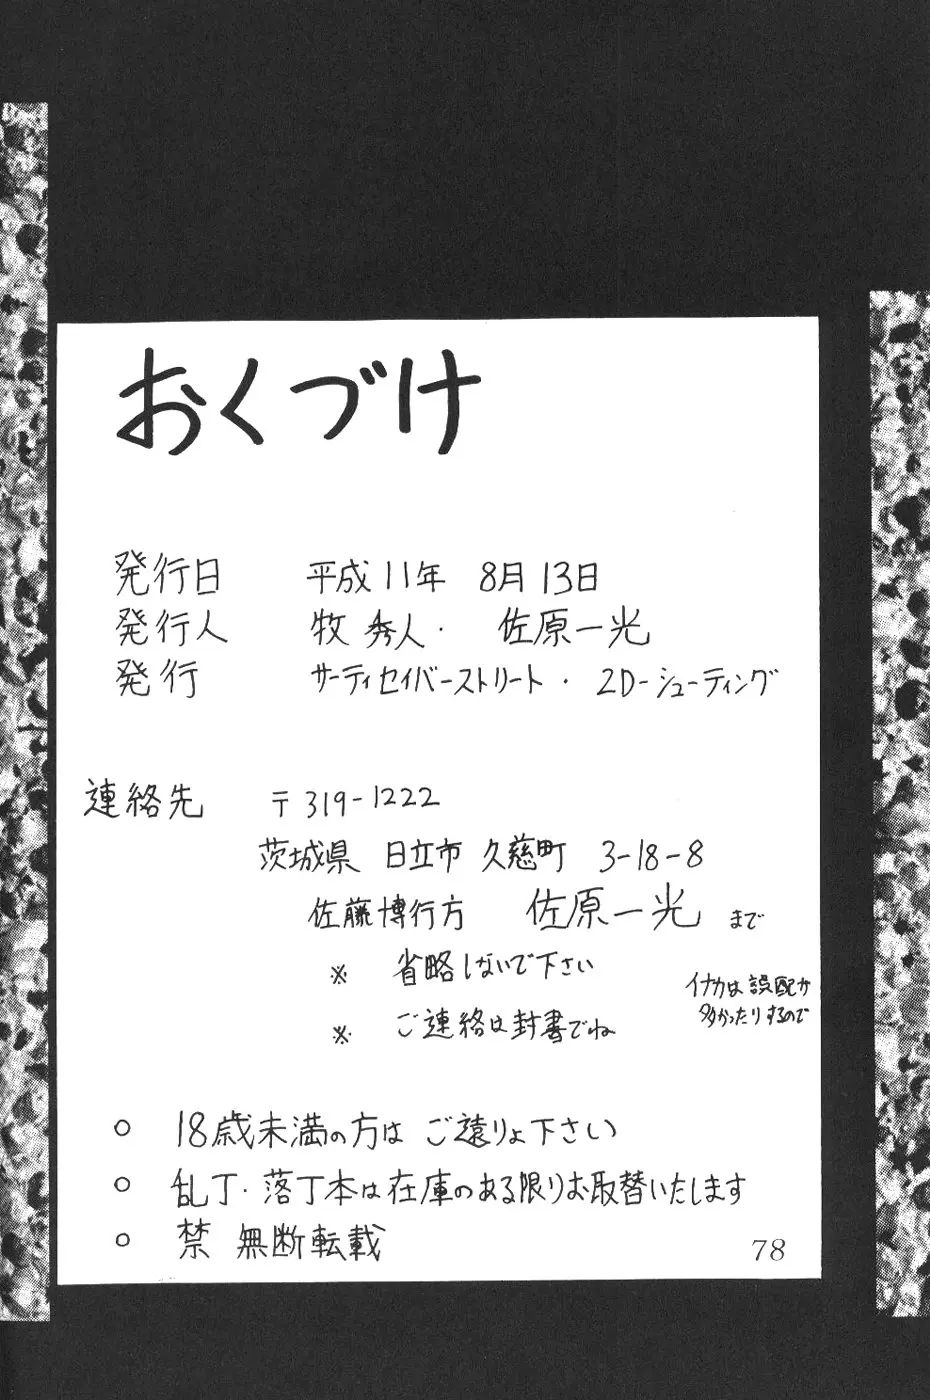 おくづけ
発行日 平成11年 8月13日
発行人 牧 秀人・ 佐原一光
発行 サーティセイバーストリート・2D-シューティング
連絡先 〒319-1222
茨城県 日立市 久慈町 3-18-8
佐藤博行方 佐原一光 まで
※ 省略しないで下さい
イナカは誤配が
多かったりするので
※ ご連絡は封書でね
○ 18歳未満の方は ご遠りょ下さい
○ 乱丁・落丁本は在庫のある限りお取替いたします
○ 禁 無断転載
78